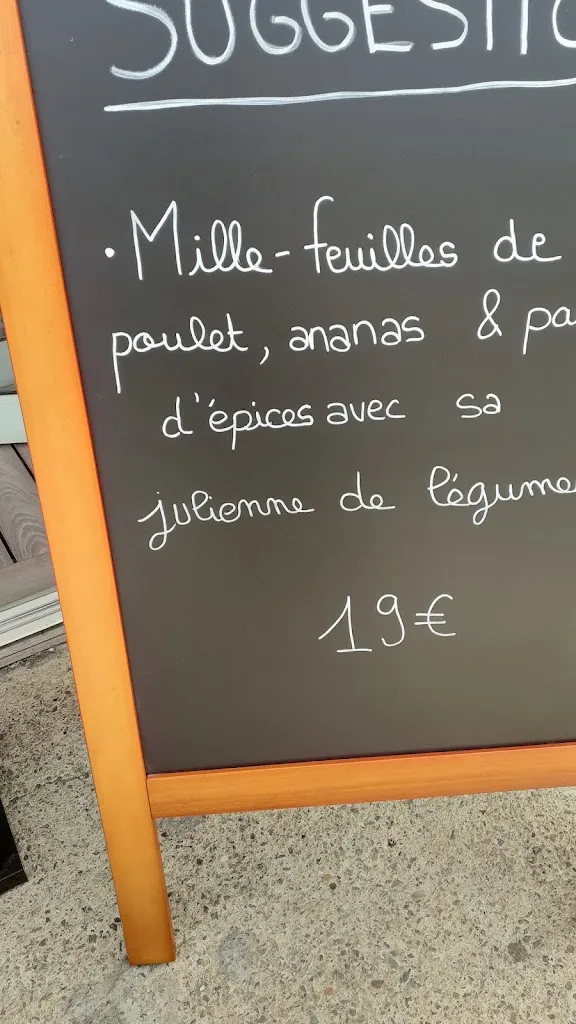 SUGGESTIO
• Mille-feuilles de
poulet, ananas & pa
d'épices avec sa
julienne de légume
19€